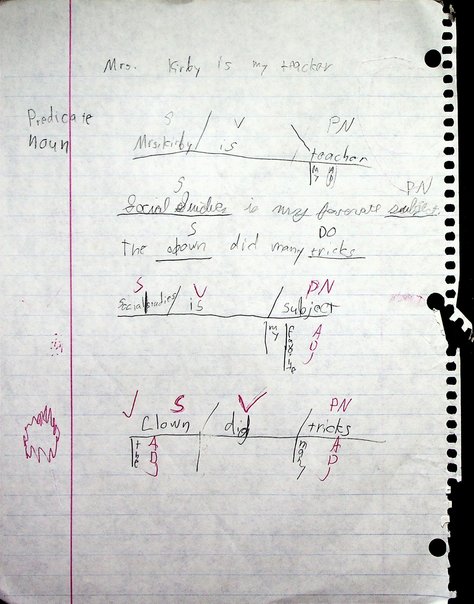 Mrs. Kirby is my teacher
Predicate noun
S V PN
Mrs. Kirby / is teacher
my ADJ
S PN
Social Studies is my favorate subject.
S DO
The clown did many tricks
S V PN
Social studies / is / subject
my favorate ADJ
S V PN
Clown / did / tricks
the ADJ many ADJ